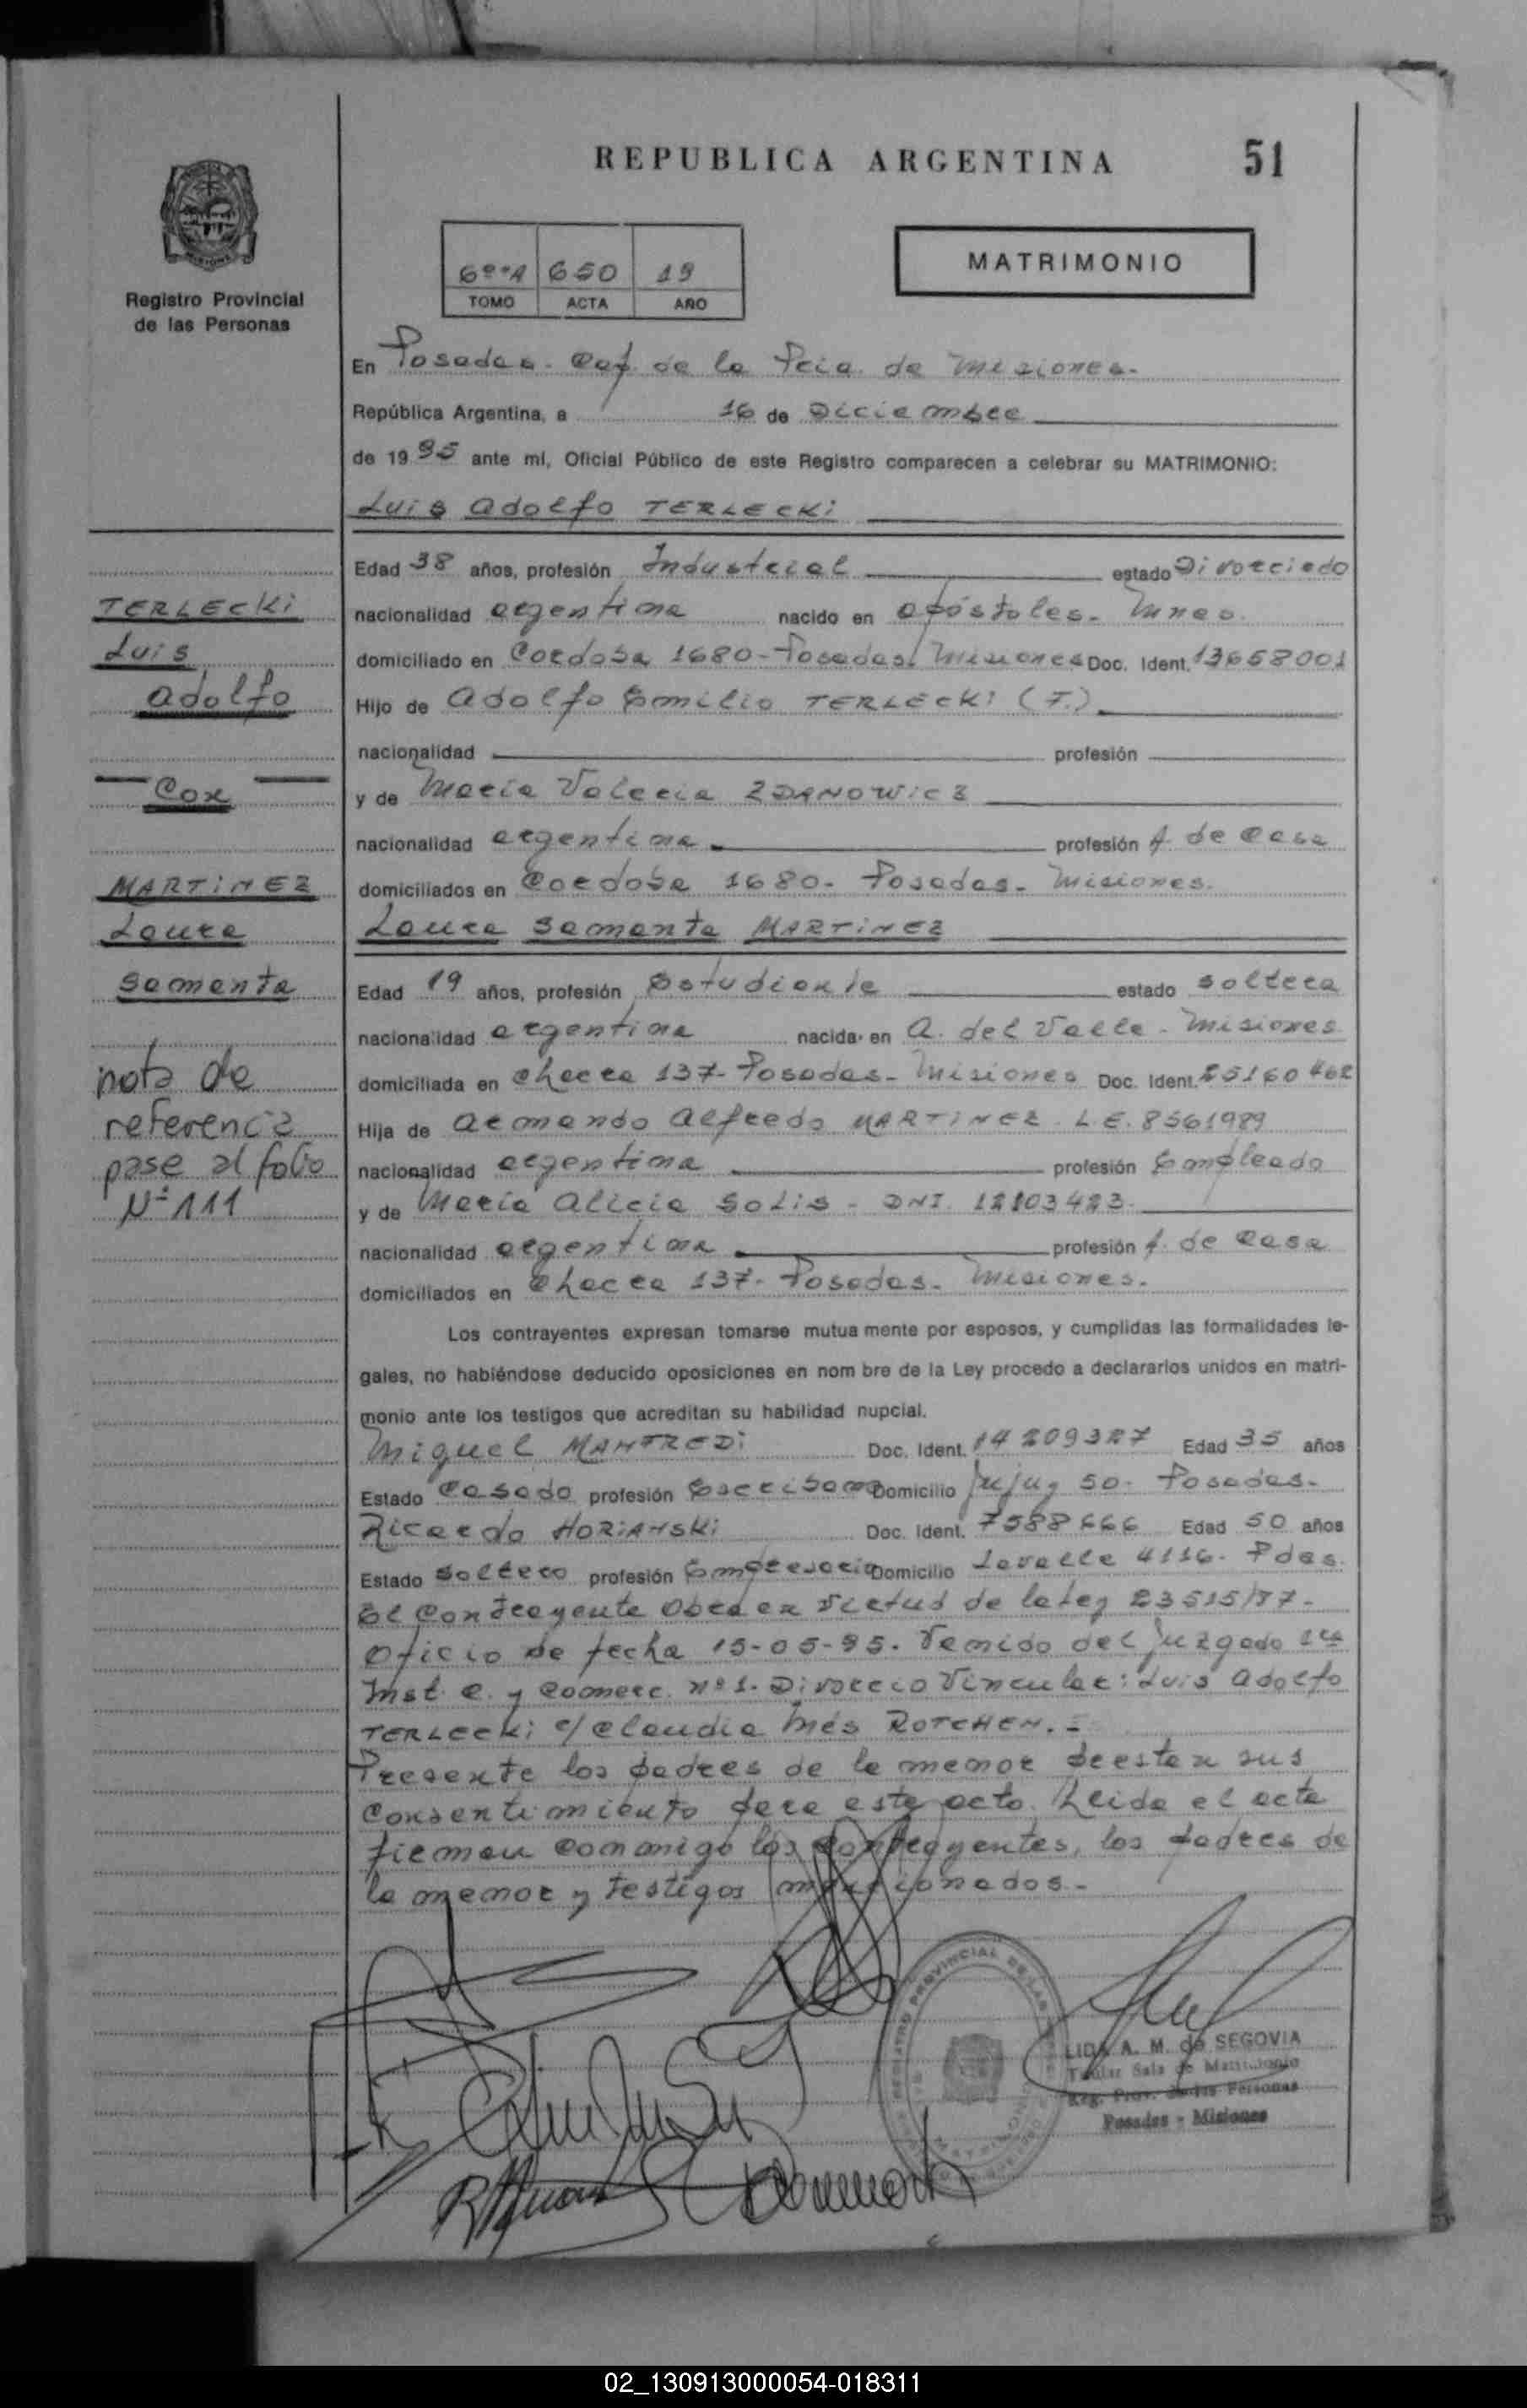 REPUBLICA ARGENTINA
51
6º "A" 650 19
TOMO ACTA AÑO
MATRIMONIO
Registro Provincial
de las Personas
En Posadas. Cap. de la Pcia. de Misiones.
República Argentina, a 16 de Diciembre
de 1995 ante mí, Oficial Público de este Registro comparecen a celebrar su MATRIMONIO:
Luis Adolfo TERLECKi
Edad 38 años, profesión Industrial estado Divorciado
nacionalidad argentina nacido en Apóstoles. Mnes.
domiciliado en Cordoba 1680 - Posadas. Misiones Doc. Ident. 13658001
Hijo de Adolfo Emilio TERLECKi (F.)
nacionalidad profesión
y de María Valeria ZDANOWicz
nacionalidad argentina profesión A. de Casa
domiciliados en Cordoba 1680. Posadas. Misiones.
Laura Samanta MARTiNEZ
Edad 19 años, profesión Estudiante estado soltera
nacionalidad argentina nacida en A. del Valle. Misiones
domiciliada en Chacra 137. Posadas. Misiones Doc. Ident. 25160462
Hija de Armando Alfredo MARTiNEZ. L.E. 8561989
nacionalidad argentina profesión Empleado
y de María Alicia SoLis - DNI. 12103423.
nacionalidad argentina profesión A. de Casa
domiciliados en Chacra 137. Posadas. Misiones.
Los contrayentes expresan tomarse mutua mente por esposos, y cumplidas las formalidades le-
gales, no habiéndose deducido oposiciones en nom bre de la Ley procedo a declararlos unidos en matri-
monio ante los testigos que acreditan su habilidad nupcial.
Miguel MANFREDi Doc. Ident. 14209327 Edad 35 años
Estado Casado profesión Escribano Domicilio Jujuy 50. Posadas.
Ricardo HORiANSKi Doc. Ident. 7588666 Edad 50 años
Estado Soltero profesión Empresario Domicilio Lavalle 4116. Pdas.
El Contrayente obra en virtud de la Ley 23515/87.
Oficio de fecha 15-05-95. Venido del Juzgado 1ra
Inst. C. y Comerc. nº 1. Divorcio Vincular: Luis Adolfo
TERLECKi c/ Claudia Inés ROTCHEN.-
Presente los padres de la menor prestan sus
Consentimiento para este acto. Leida el acta
firman conmigo los contrayentes, los padres de
la menor y testigos mencionados.-
TERLECKi
Luis
Adolfo
Con
MARTiNEZ
Laura
Samanta
nota de
referencia
pase al folio
Nº 111
REGISTRO PROVINCIAL DE LAS
LIDA A. M. de SEGOVIA
Titular Sala de Matrimonio
Reg. Prov. de las Personas
Posadas - Misiones
02_130913000054-018311